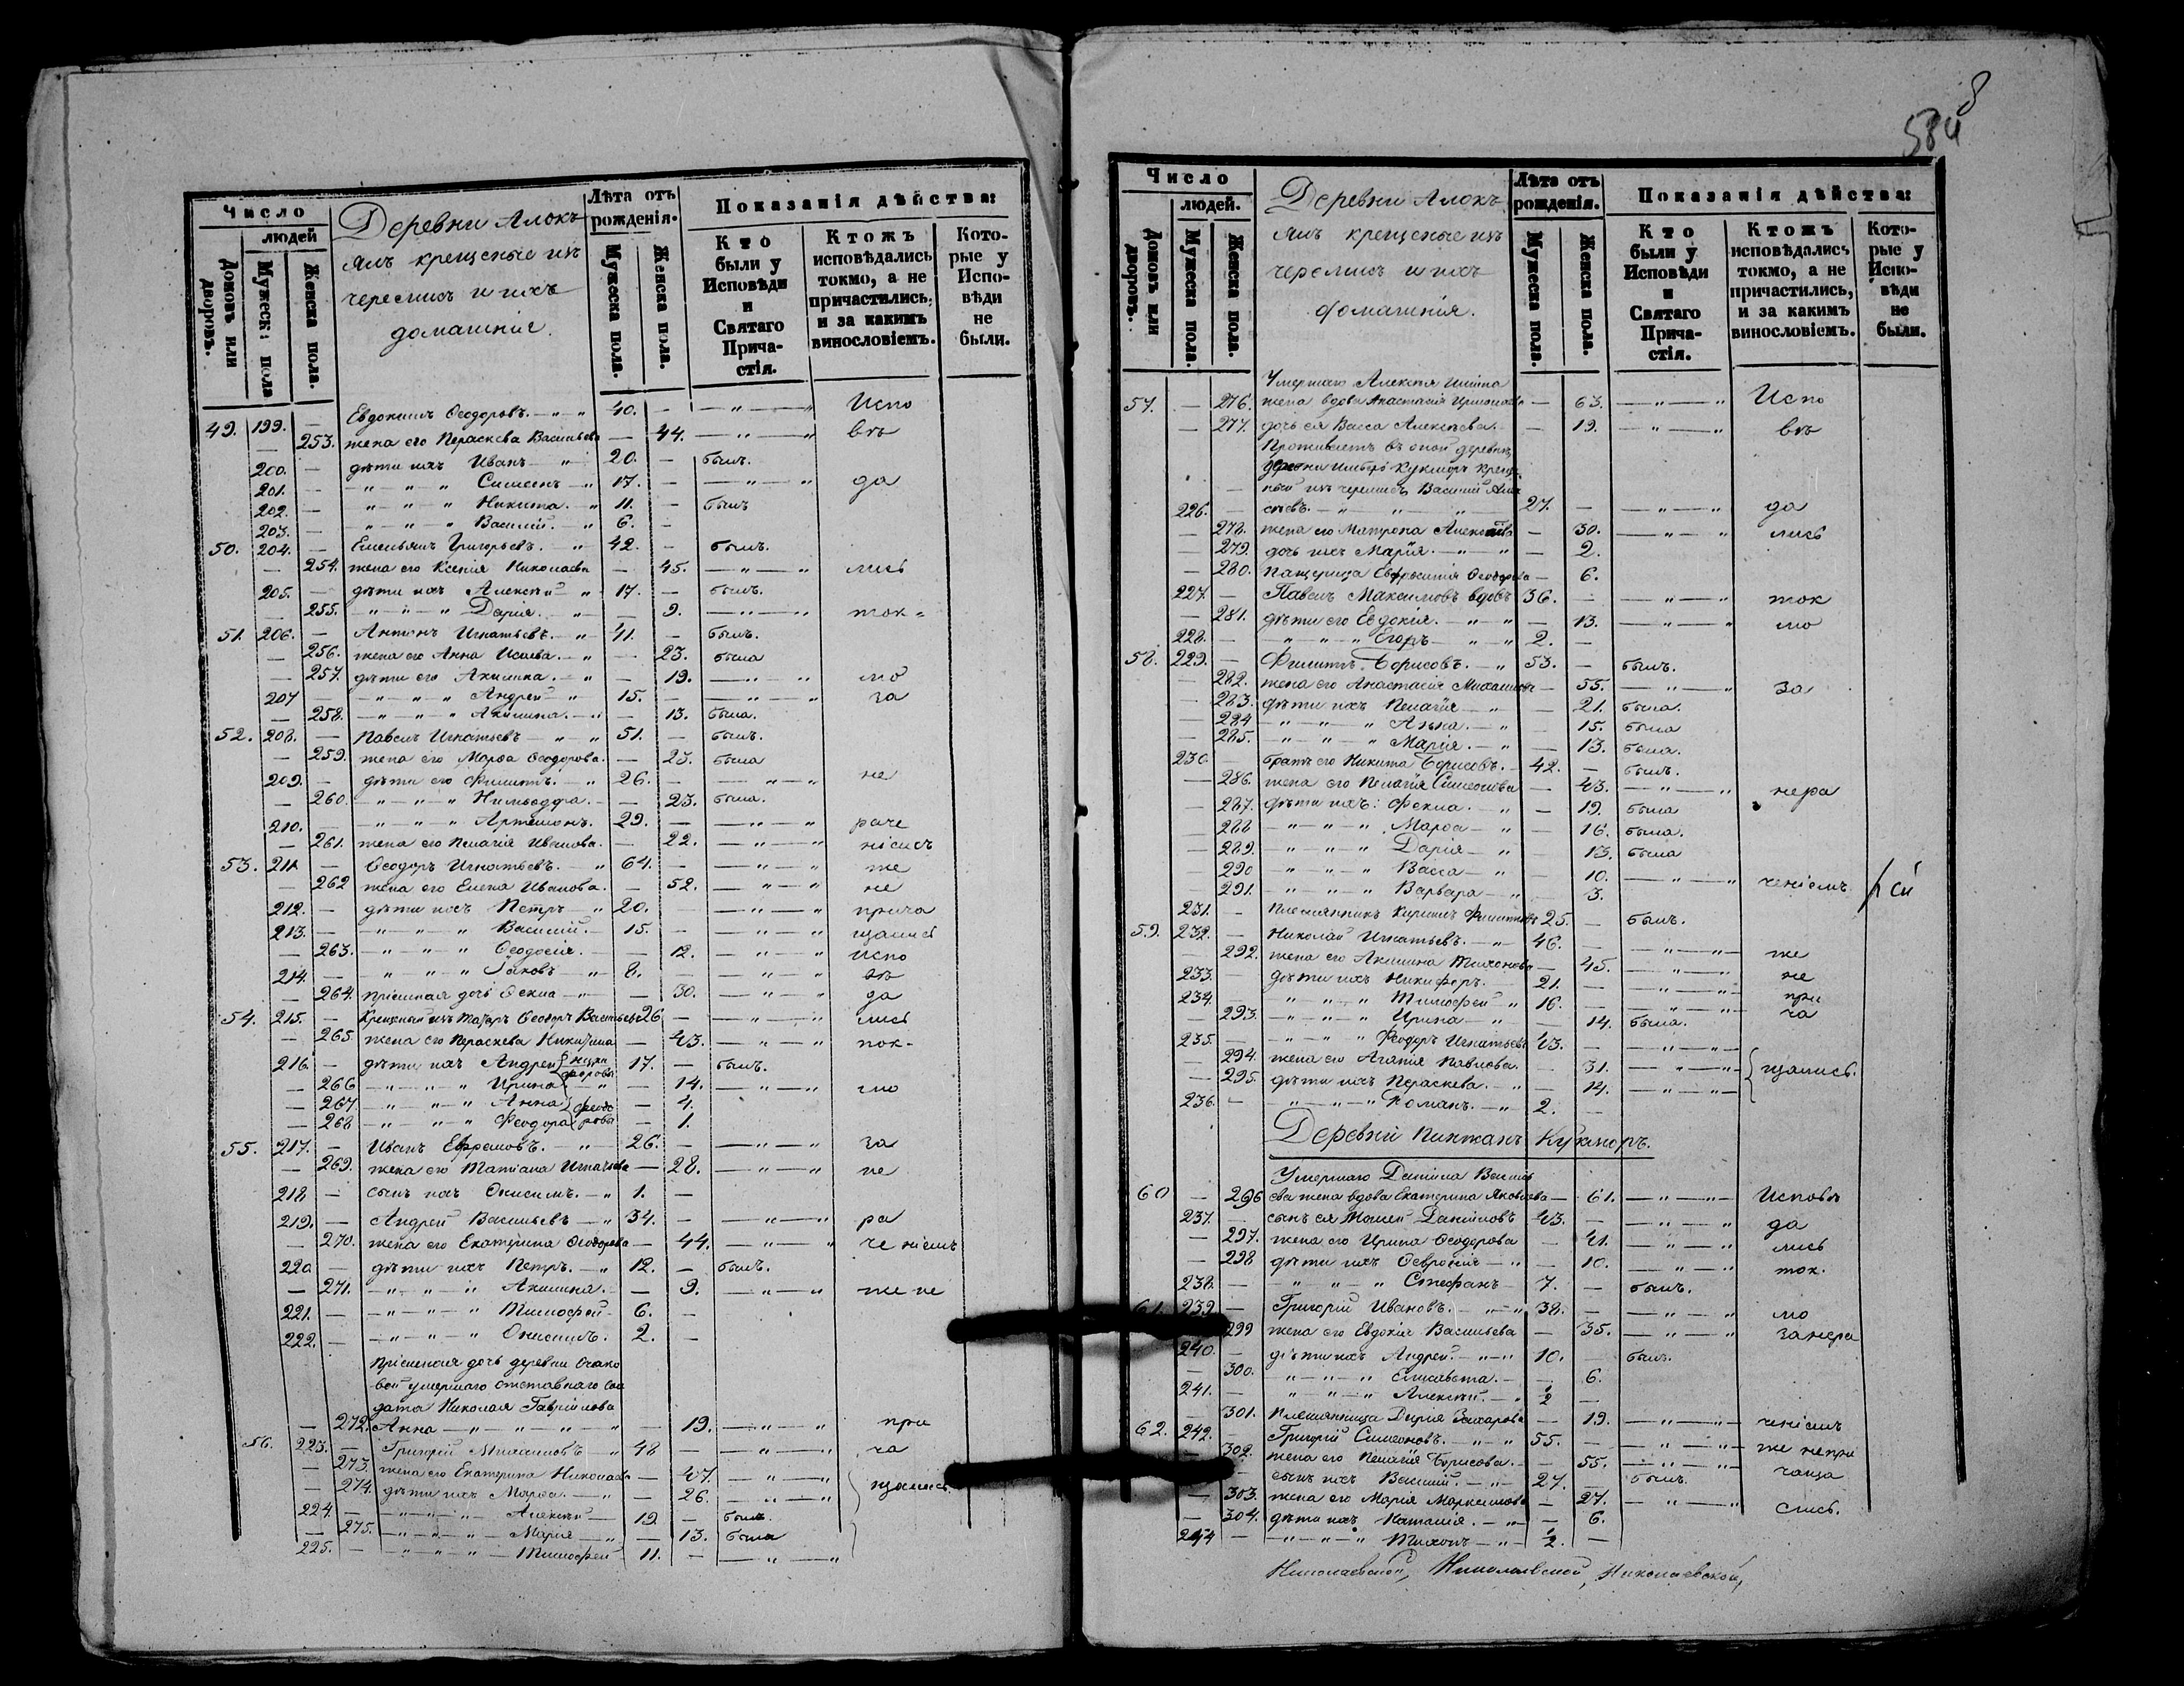 584
Число
людей
Домовъ или дворовъ.
Мужеск: пола
Женска пола.
Деревни Алокъ
ялъ крещеные изъ
черемисъ и ихъ
домашніе.
Лѣта отъ рожденія.
Мужеска пола.
Женска пола.
Показанія дѣйства:
Кто были у Исповѣди и Святаго Причастія.
Ктожъ исповѣдались токмо, а не причастились, и за какимъ винословіемъ.
Которые у Исповѣди не были.
49. 199. — Евдокимъ Ѳеодоровъ. — „ 40. — — „ — „ Испо
— 253. жена его Параскева Васильева — 44. — „ — „ вѣ
200. — дѣти ихъ Иванъ — „ 20. — былъ.
201. — — „ — „ Симеонъ — „ 17. — — „ — „ да
202. — „ — „ — „ Никита. — „ 11. — былъ
203. — „ — „ — „ Василій. — „ 6. —
50. 204. — Емельянъ Григорьевъ. — „ 42. — былъ.
— 254. жена его Ксенія Николаева — 45. — „ — „ лись
205. — дѣти ихъ Алексѣй „ 17. — былъ.
— 255. — „ — „ — „ Дарія. — „ — 9. — „ — „ ток-
51. 206. — Антонъ Игнатьевъ. — „ 41. — былъ.
— 256. жена его Анна Исаева. — „ — 23. была
— 257. дѣти его Акилина. — „ — 19. — „ — „ мо
207 — — „ — „ — „ Андрей — „ 15. — — „ — „ за
— 258. — „ — „ — „ Акилина. — „ — 13. была.
52. 208. — Павелъ Игнатьевъ — „ — „ 51. — былъ.
— 259. жена его Марѳа Ѳеодорова. — 23. была
209. — дѣти его Филиппъ. — „ 26. — — „ — „ не
— 260. — „ — „ — „ — — 23. была.
210. — — „ — „ — „ Артемонъ. 29. — — „ — „ раче
— 261. жена его Пелагія Иванова. — 22. — „ — „ ніемъ
53. 211. — Ѳеодоръ Игнатьевъ. — „ 64. — — „ — „ же
— 262 жена его Елена Иванова. — 52. — „ — „ не
212. — дѣти ихъ Петръ — „ 20. — — „ — „ прича
213. — — „ — „ — „ Василій. — 15. — — „ — „ щались
— 263. — „ — „ — „ Ѳеодосія. — — 12. — „ — „ Испо
214. — — „ — „ — „ Іаковъ — „ 8. — — „ — „ вѣ
— 264. пріемная дочь Ѳекла — „ — 30. — „ — „ да
54. 215. — Крещеный изъ татаръ Ѳеодоръ Васильевъ 26 — — „ — „ лись
— 265. жена его Параскева Никитина — 43. — „ — „ ток-
216. — дѣти ихъ Андрей 17. — былъ.
— 266 — „ — „ — „ Ирина — „ — 14. — „ — „ мо
— 267 — „ — „ — „ Анна { Ѳеодо — 4.
— 268 — „ — „ — „ Ѳеодора { ровы — 1.
55. 217. — Иванъ Ефремовъ. — „ 26. — — „ — „ за
— 269. жена его Татіана Игнатьева — 28. — „ — „ не
218 — сынъ ихъ Онисимъ. — „ 1. —
219. — Андрей Васильевъ — „ 34. — — „ — „ ра
— 270. жена его Екатерина Ѳеодорова — 44. — „ — „ ченіемъ
220 — дѣти ихъ Петръ. — „ 12. — былъ.
— 271. — „ — „ — „ Акилина. — — 9. — „ — „ же не
221. — — „ — „ — „ Тимоѳей — 6. —
222. — — „ — „ — „ Онисимъ. 2. —
Пріемная дочь деревни Очако
вой умершаго отставнаго сол
дата Николая Гаврилова
— 272. Анна — „ — „ — „ — „ — 19. — „ — „ при
56. 223. — Григорій Михайловъ — „ 48 — — „ — „ ча
— 273. жена его Екатерина Николаева — 47. — „ — „
— 274. дѣти ихъ Марѳа. — „ — 26. — „ — „ щались.
224. — — „ — „ — Алексѣй — 19 — былъ.
— 275. — „ — „ — „ — Марія — „ — 13. была
225. — — „ — „ — „ — Тимоѳей 11. — — „ — „
Число
людей.
Домовъ или дворовъ.
Мужеска пола.
Женска пола.
Деревни Алокъ
ялъ крещеные изъ
черемисъ и ихъ
домашнія.
Лѣта отъ рожденія.
Мужеска пола.
Женска пола.
Показанія дѣйства:
Кто были у Исповѣди и Святаго Причастія.
Ктожъ исповѣдались токмо, а не причастились, и за какимъ винословіемъ.
Которые у Исповѣди не были.
Умершаго Алексѣя
57. — 276. жена вдова Анастасія — 63. — „ — „ Испо
— 277. дочь ея Васса Алексѣева. — 19. — „ — „ вѣ
Проживаетъ въ оной деревнѣ
деревни Кукморъ креще
ный изъ черемисъ Василій Алек
226. — сѣевъ. — „ — „ — „ 27. — — „ — „ да
— 278. жена его Матрона Алексѣева — 30. — „ — „ лись
— 279. дочь ихъ Марія. — „ — „ — 2.
— 280. Падчерица Евфросинія Ѳеодорова — 6.
227. — Павелъ Максимовъ вдовъ 36. — — „ — „ ток
— 281. дѣти его Евдокія. — „ — „ — 13. — „ — „ мо
228. — — „ — „ — „ Егоръ — „ — „ 2. —
58. 229. — Филиппъ Борисовъ. — „ 53. — былъ.
— 282. жена его Анастасія Михайлова — 55. — „ — „ за
— 283. дѣти ихъ Пелагія — „ — 21. была.
— 284 — „ — „ — „ Анна. — „ — 15. была
— 285. — „ — „ — „ Марія. — „ — 13. была.
230. — братъ его Никита Борисовъ. — 42. — былъ.
— 286. жена его Пелагія Симеонова — 43. — „ — „ нера
— 287. дѣти ихъ: Ѳекла. — „ — 19. была
— 288 — „ — „ — „ Марѳа — „ — 16. была.
— 289. — „ — „ — „ Дарія — „ — 13. была
290 — „ — „ — „ Васса — „ — 10. — „ — „ ченіемъ
291. — „ — „ — „ Варвара — „ 3.
231. — Племянникъ Кириллъ Филипповъ 25. — былъ.
59. 232. — Николай Игнатьевъ. — „ 46. — — „ — „ же
— 292. жена его Акилина Тихонова — 45. — „ — „ не
233. — дѣти ихъ Никифоръ. — 21. — — „ — „ при
234. — — „ — „ — „ Тимоѳей — „ 16. — — „ — „ ча
— 293. — „ — „ — „ Ирина — „ — 14. была.
235. — — „ — „ — „ Ѳеодоръ Игнатьевъ 43. — — „ — „
— 294. жена его Агапія Павлова. — 31. — „ — „ щались.
— 295. дѣти ихъ Параскева. — „ — 14. — „ — „
236. — — „ — „ — „ Романъ. — „ 2. —
Деревни Пинжанъ Кукморъ.
Умершаго Даніила Васильe
60 — 296 ва жена вдова Екатерина Яковлева — 61. — „ — „ Исповѣ
237. — сынъ ея Даниловъ 43. — — „ — „ да
— 297. жена его Ирина Ѳеодорова — 41. — „ — „ лись
— 298 дѣти ихъ — „ — 10. — „ — „ ток.
238. — — „ — „ — „ Стефанъ — 7. — былъ.
61. 239. — Григорій Ивановъ. — „ 38. — — „ — „ мо
299 жена его Евдокія Васильева — 35. — „ — „ за нера
240. — дѣти ихъ Андрей. — „ 10. — былъ.
— 300. — „ — „ — „ Елисавета. — — 6.
241. — — „ — „ — „ Алексѣй. — „ ½ —
— 301. Племянница Дарія Захарова — 19. — „ — „ ченіемъ
62. 242. — Григорій Симеоновъ. — „ 55. — — „ — „ же непри
— 302. жена его Пелагія Борисова. — 55. — „ — „ чаща
сынъ ихъ Василій. — „ 27. — былъ.
— 303. жена его Марія — 27. — „ — „ лись.
— 304. дѣти ихъ Наталія. — „ — 6.
244 — — „ — „ — „ Тихонъ — „ ½. —
Николаевской, Николаевской, Николаевской,